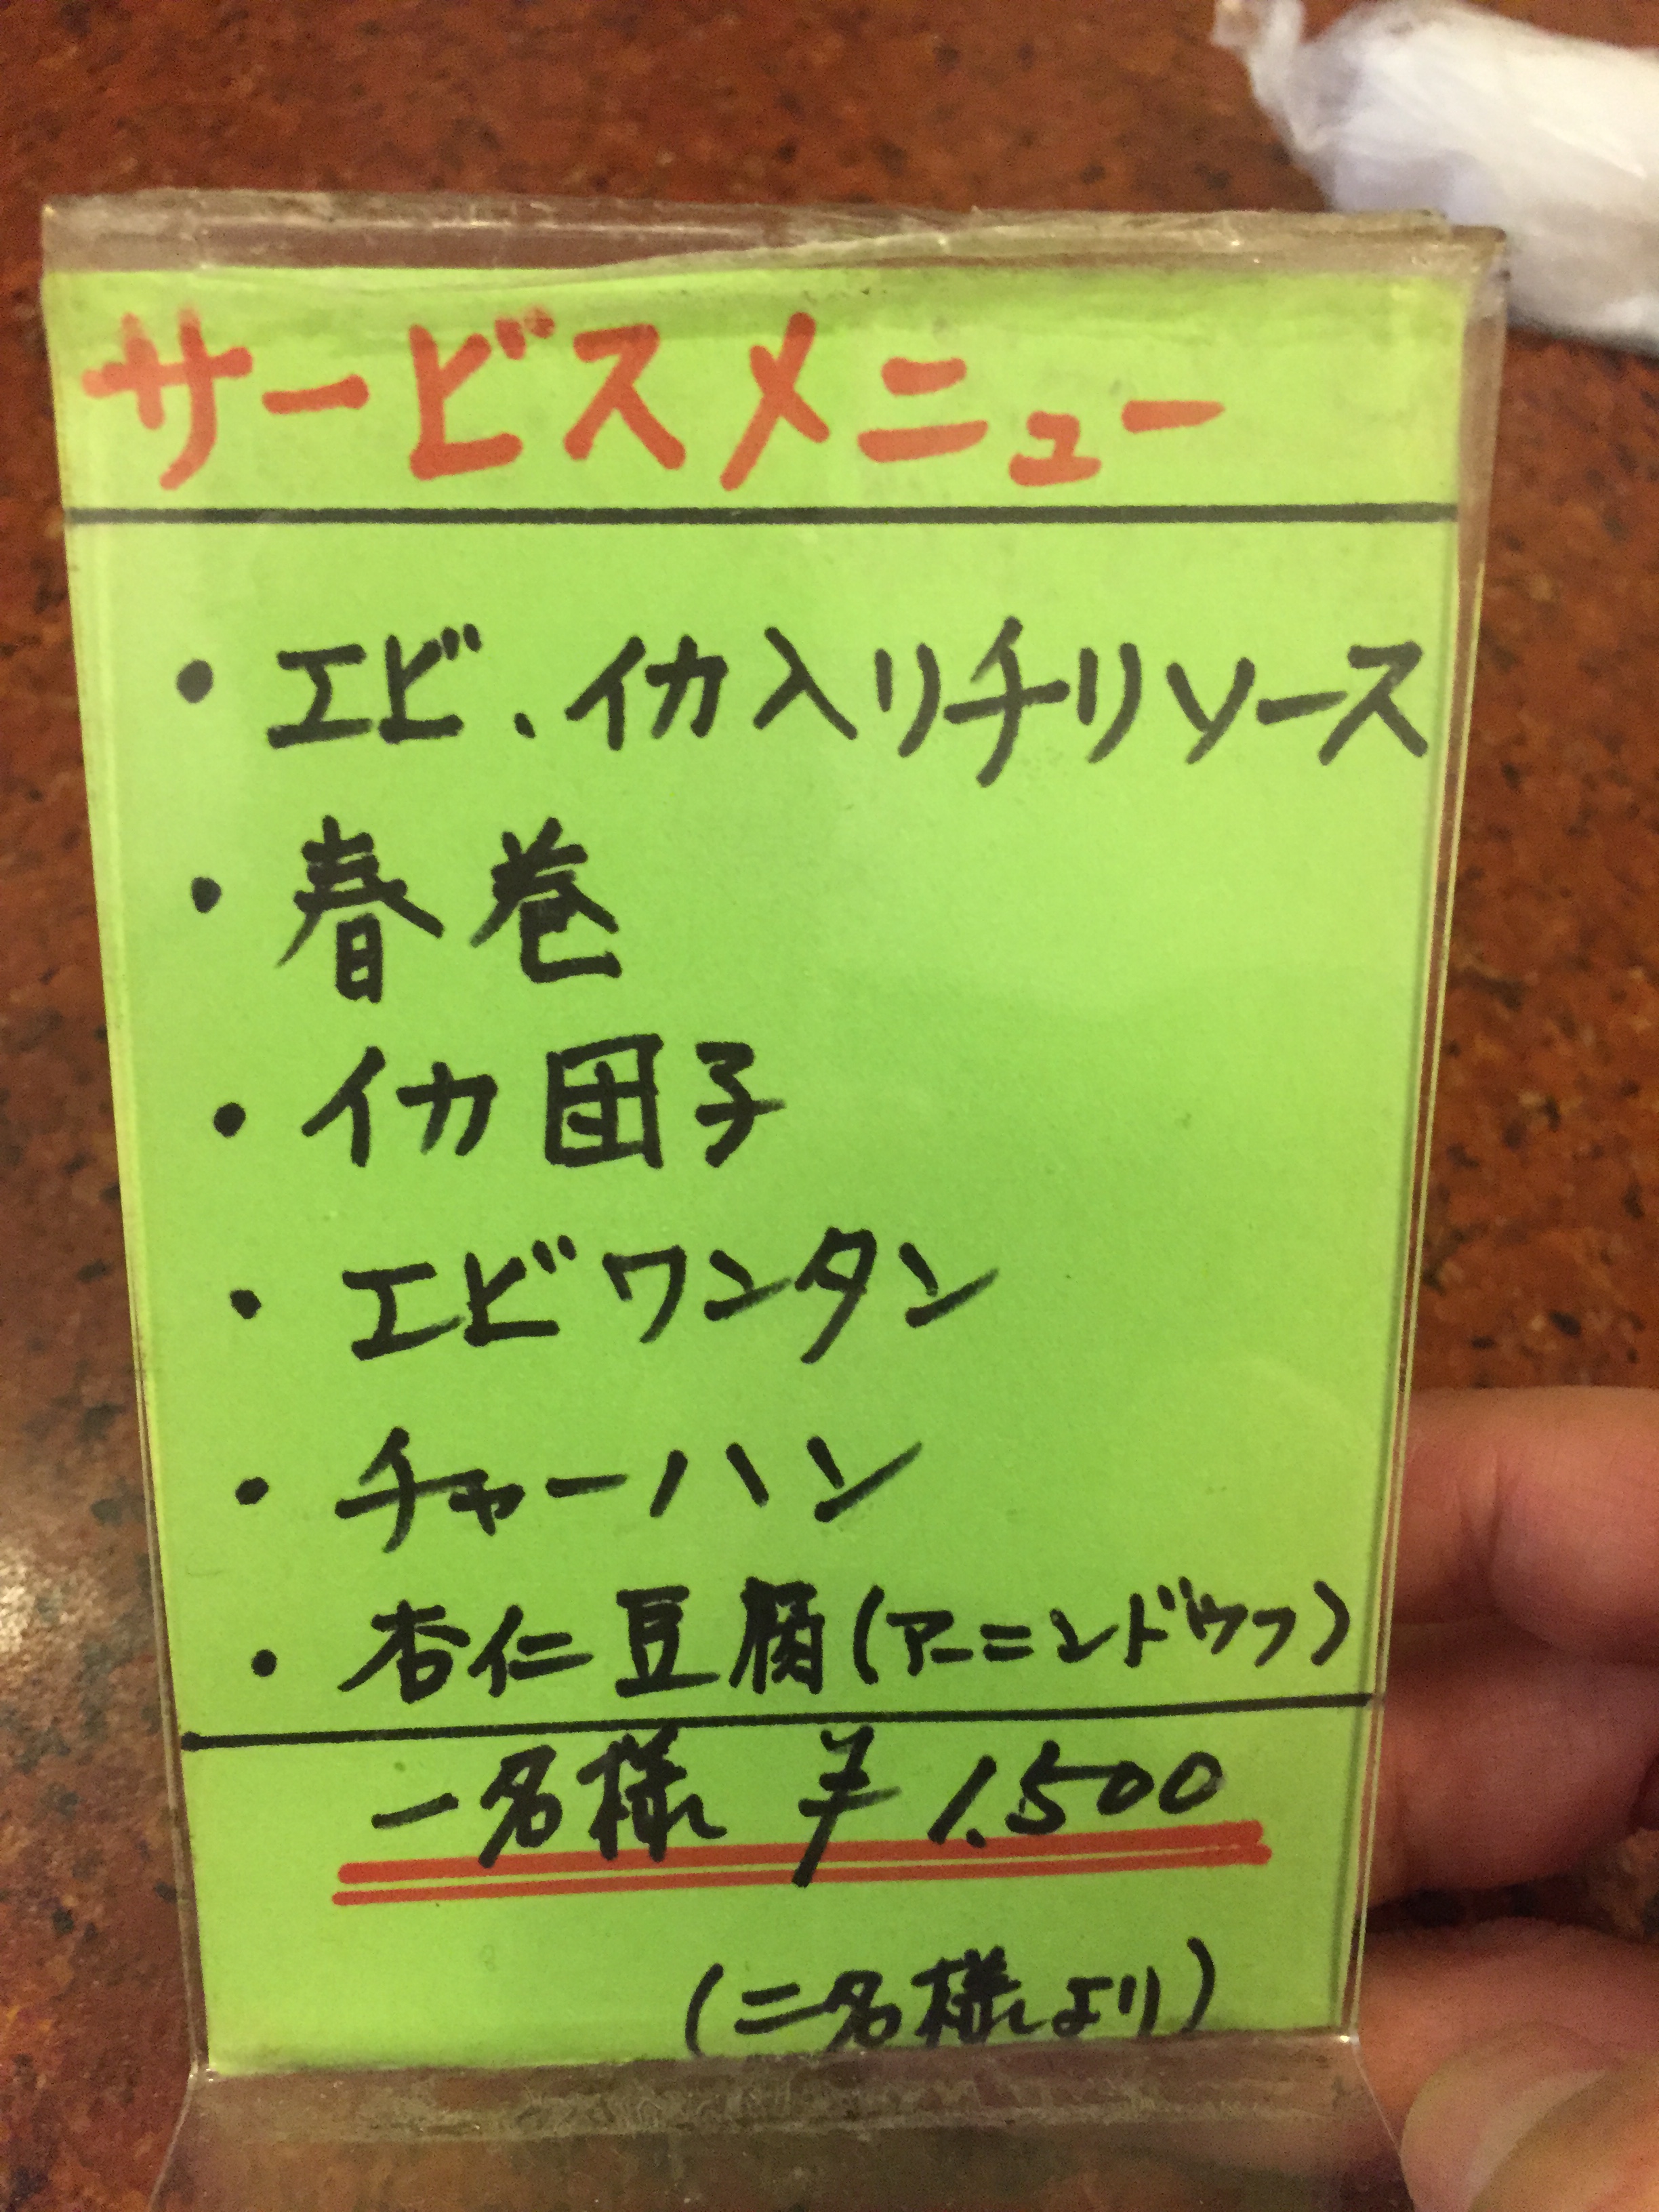 サービスメニュー
・エビ、イカ入リチリソース
・春巻
・イカ団子
・エビワンタン
・チャーハン
・杏仁豆腐(アーニンドウフ)
一名様 ¥1.500
(二名様より)